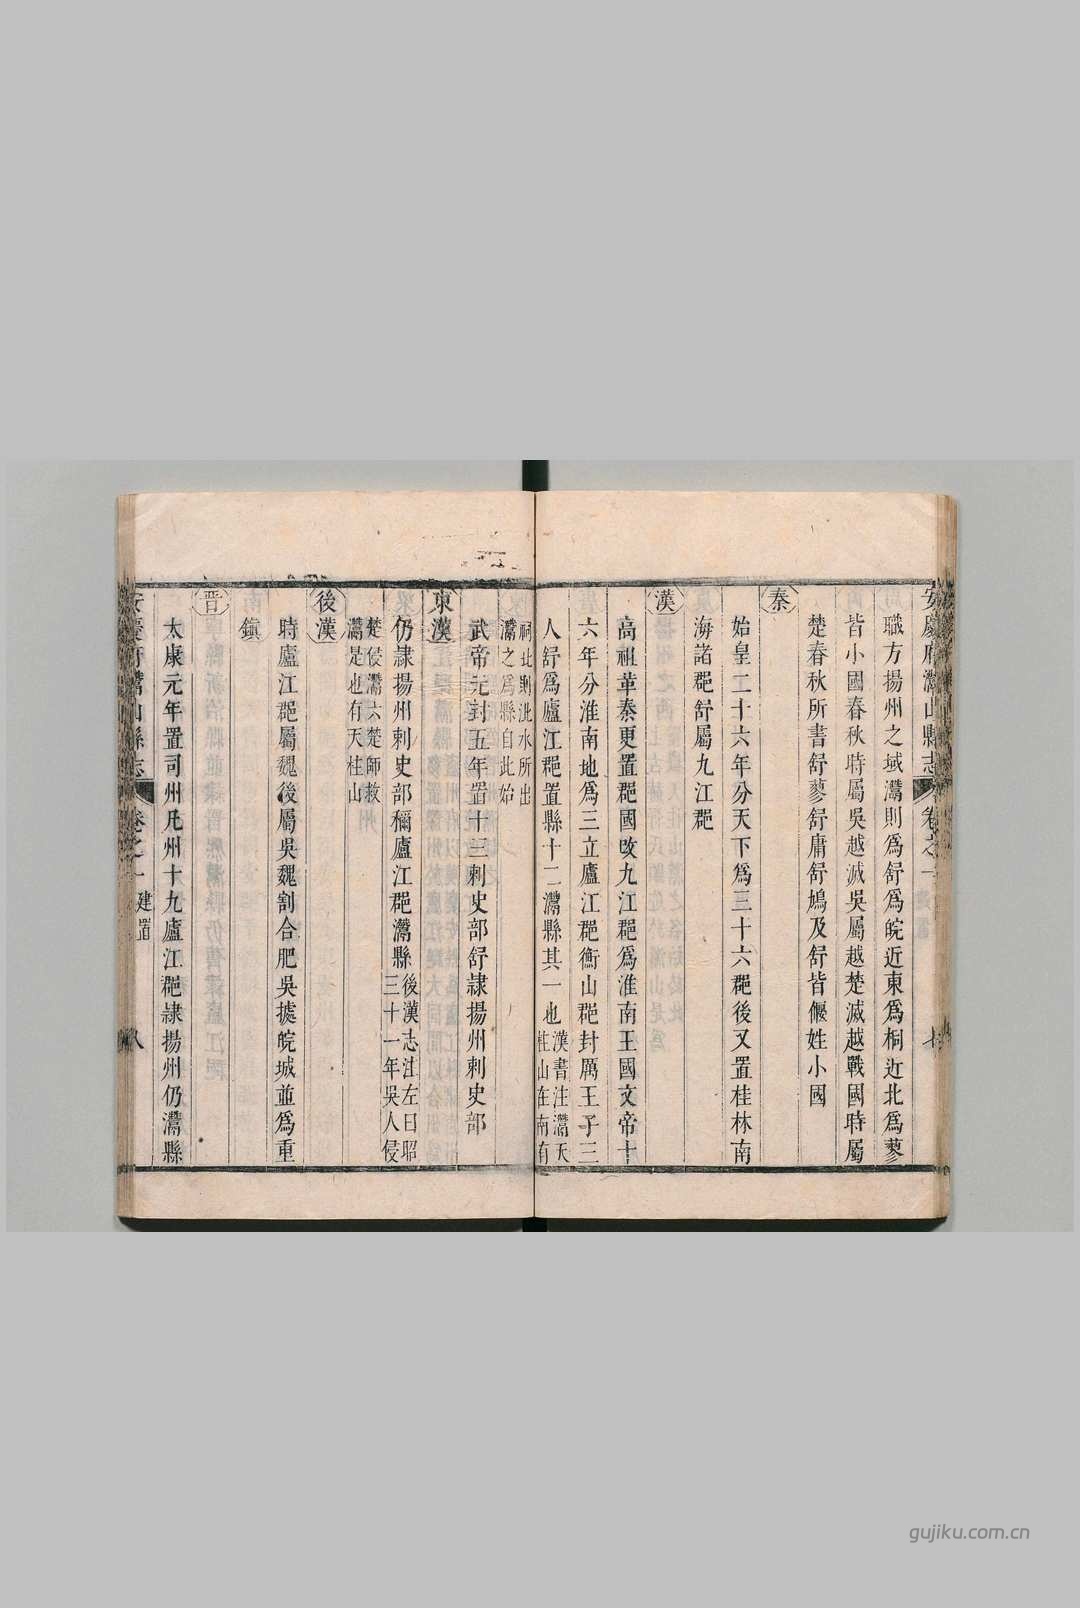 安慶府灊山縣志 卷之一
職方揚州之域灊則爲舒爲皖近東爲桐近北爲蓼
皆小國春秋時屬吳越滅吳屬越楚滅越戰國時屬
楚春秋所書舒蓼舒庸舒鳩及舒皆偃姓小國
秦
始皇二十六年分天下爲三十六郡後又置桂林南
海諸郡舒屬九江郡
漢
高祖革秦更置郡國改九江郡爲淮南王國文帝十
六年分淮南地爲三立廬江郡衡山郡封厲王子三
人舒爲廬江郡置縣十二灊縣其一也漢書注灊天
柱山在南有
祠北則沘水所出
灊之爲縣自此始
武帝元封五年置十三刺史部舒隷揚州刺史部
東漢
仍隷揚州刺史部稱廬江郡灊縣後漢志注左曰昭
三十一年吳人侵
楚侵灊六楚師救
灊是也有天柱山
後漢
時廬江郡屬魏後屬吳魏割合肥吳據皖城並爲重
鎮
晋
太康元年置司州凡州十九廬江郡隷揚州仍灊縣
安慶府灊山縣志 卷之一 建置 八
gujiku.com.cn